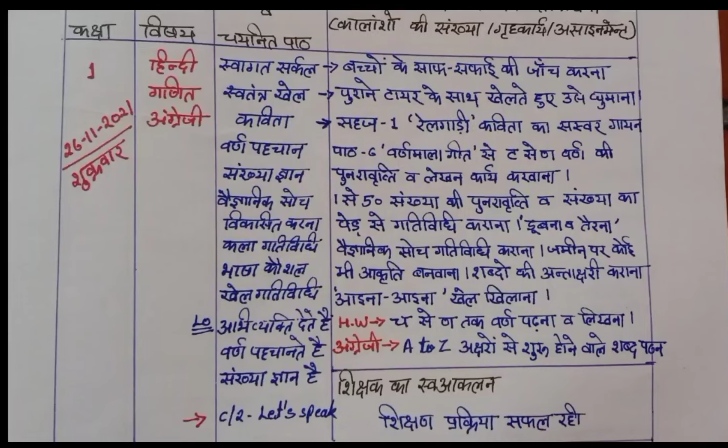 (कालांशो की संख्या/गृहकार्य/असाइनमेन्ट)
कक्षा विषय चयनित पाठ
1 हिन्दी स्वागत सर्कल → बच्चों के साफ-सफाई की जाँच करना
गणित स्वतंत्र खेल → पुराने टायर के साथ खेलते हुए उसे घुमाना।
अंग्रेजी कविता → सहज-1 'रेलगाड़ी' कविता का सस्वर गायन
26-11-2021
शुक्रवार
वर्ण पहचान पाठ-6 'वर्णमाला गीत' से ट से ण वर्ण की
संख्या ज्ञान पुनरावृत्ति व लेखन कार्य करवाना।
वैज्ञानिक सोच 1 से 50 संख्या की पुनरावृत्ति व संख्या का
विकसित करना पेड़ से गतिविधि कराना। 'डूबना व तैरना'
कला गतिविधि वैज्ञानिक सोच गतिविधि कराना। जमीन पर कोई
भाषा कौशल भी आकृति बनवाना। शब्दो की अन्ताक्षरी कराना
खेल गतिविधि 'आइना-आइना' खेल खिलाना।
LO अभिव्यक्ति देते है H.W → च से ण तक वर्ण पढ़ना व लिखना।
वर्ण पहचानते है अंग्रेजी → A to Z अक्षरों से शुरू होने वाले शब्द पढ़ना
संख्या ज्ञान है
शिक्षक का स्वआकलन
→ C/2- Let's speak शिक्षण प्रक्रिया सफल रही